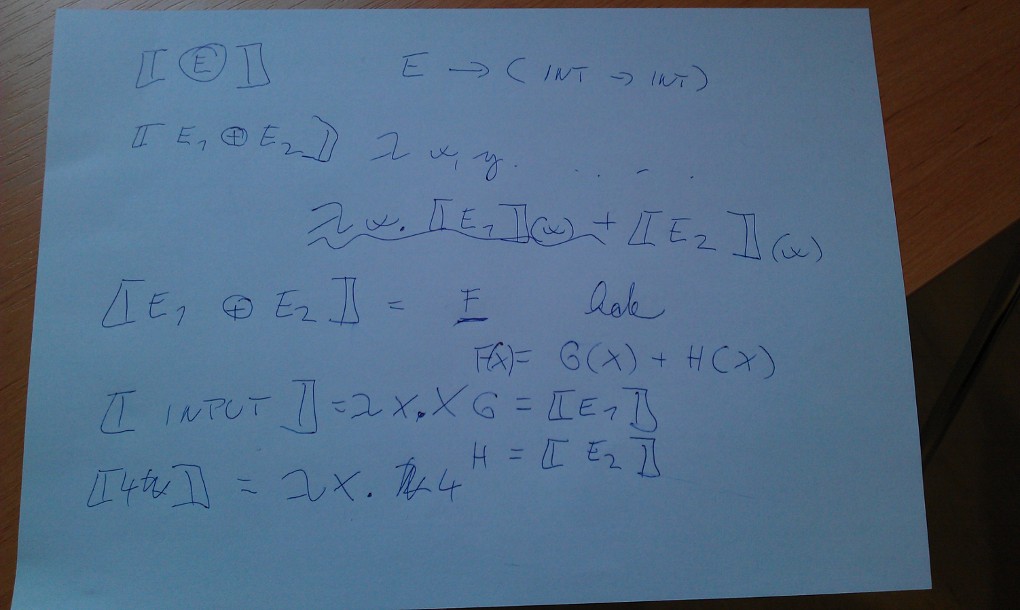 ⟦ E ⟧ E → ( INT → INT )
⟦ E₁ ⊕ E₂ ⟧ λ x, y. . . . - .
λ x. ⟦ E₁ ⟧(x) + ⟦ E₂ ⟧(x)
⟦ E₁ ⊕ E₂ ⟧ = F
F(x) = G(X) + H(X)
⟦ INPUT ⟧ = λ X. X G = ⟦ E₁ ⟧
H = ⟦ E₂ ⟧
⟦ 4 ⟧ = λ X. 4